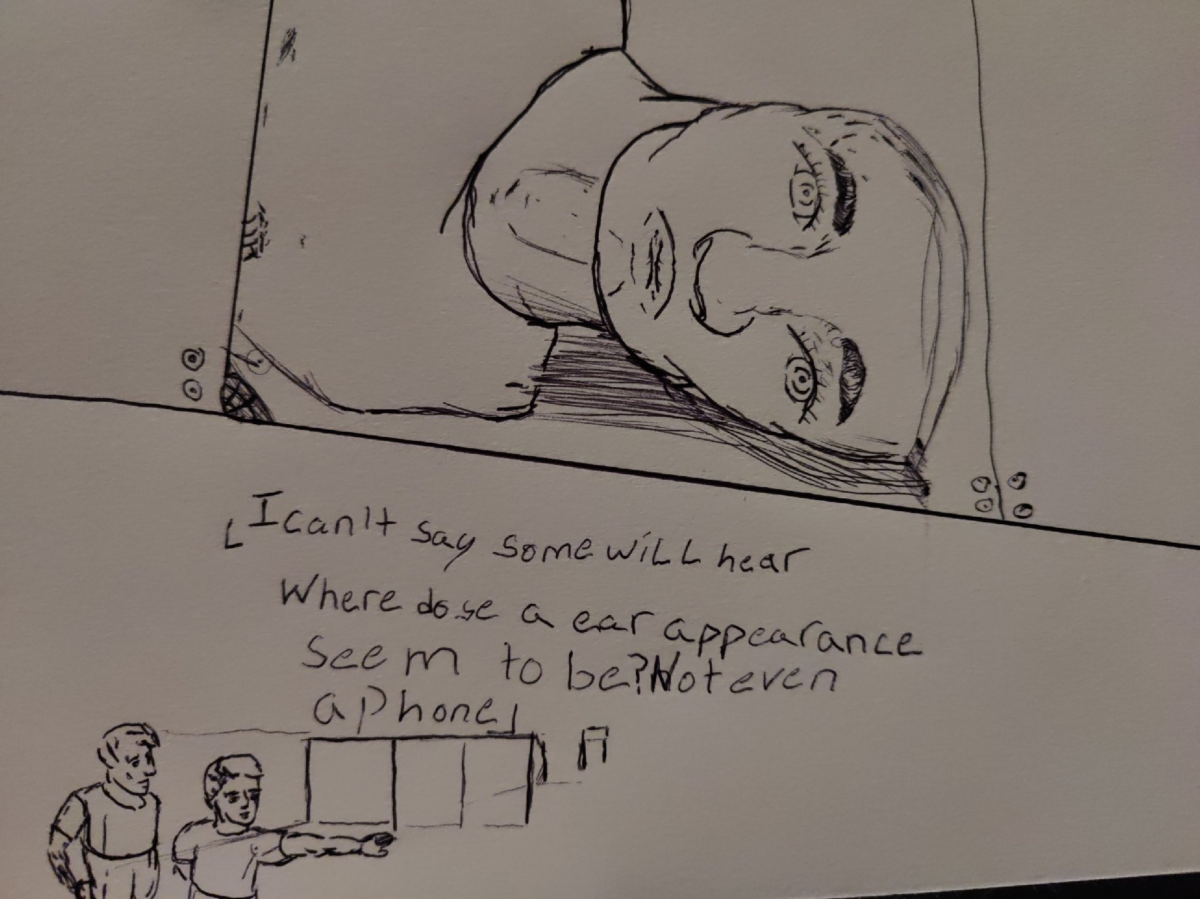 「I can't say some will hear
Where dose a ear appearance
seem to be? Not even
a phone」